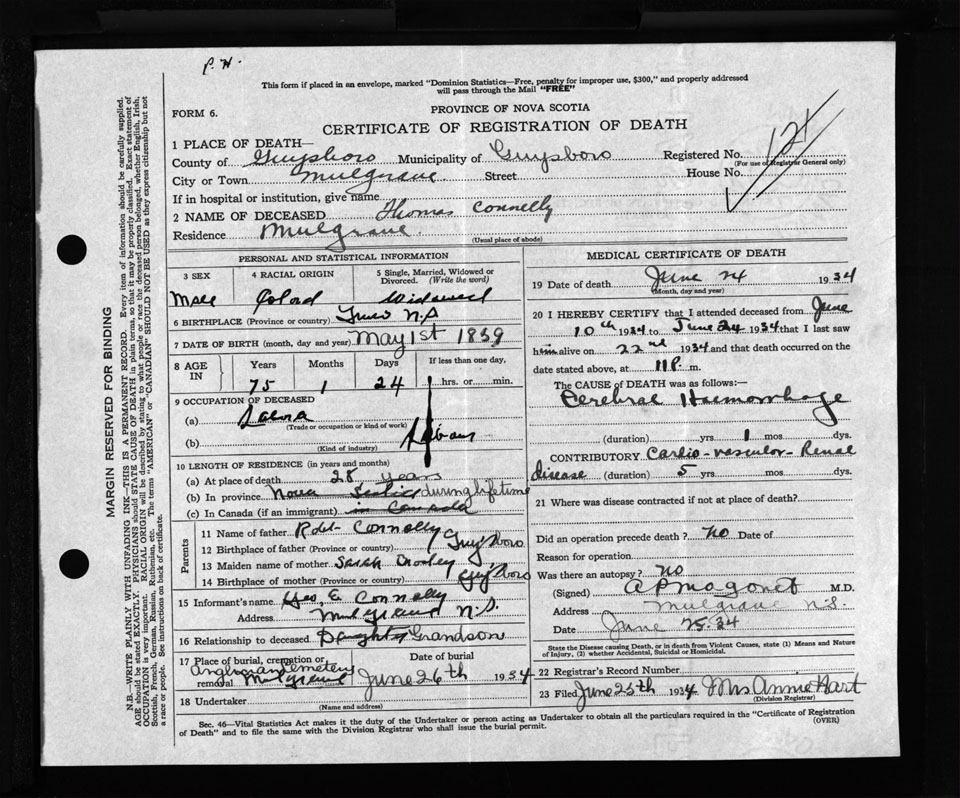 P. H.
This form if placed in an envelope, marked "Dominion Statistics—Free, penalty for improper use, $300," and properly addressed
will pass through the Mail "FREE"
FORM 6.
PROVINCE OF NOVA SCOTIA
CERTIFICATE OF REGISTRATION OF DEATH
1 PLACE OF DEATH—
County of Guysboro Municipality of Guysboro Registered No. 124
(For use of Registrar General only)
City or Town Mulgrave Street House No.
If in hospital or institution, give name
2 NAME OF DECEASED Thomas Connelly
Residence Mulgrave
(Usual place of abode)
PERSONAL AND STATISTICAL INFORMATION
3 SEX 4 RACIAL ORIGIN 5 Single, Married, Widowed or Divorced. (Write the word)
Male Colord Widowed
6 BIRTHPLACE (Province or country) Truro N.S
7 DATE OF BIRTH (month, day and year) May 1st 1839
8 AGE IN Years Months Days If less than one day,
75 1 24 hrs. or min.
9 OCCUPATION OF DECEASED
(a) Labora
(Trade or occupation or kind of work)
(b)
(Kind of industry)
10 LENGTH OF RESIDENCE (in years and months)
(a) At place of death 28 years
(b) In province Nova Scotia during lifetime
(c) In Canada (if an immigrant) in Canada
Parents
11 Name of father Robt Connelly
12 Birthplace of father (Province or country) Guysboro
13 Maiden name of mother Sarah
14 Birthplace of mother (Province or country) Guysboro
15 Informant's name Geo E. Connelly
Address Mulgrave N.S.
16 Relationship to deceased Daughter Grandson
17 Place of burial, cremation or removal Date of burial
Anglican Cemetery
Mulgrave June 26th 1934
18 Undertaker
(Name and address)
MEDICAL CERTIFICATE OF DEATH
19 Date of death June 24 1934
(Month, day and year)
20 I HEREBY CERTIFY that I attended deceased from June
10th 1934 to June 24 1934 that I last saw
him alive on 22nd 1934 and that death occurred on the
date stated above, at 11 P. m.
The CAUSE OF DEATH was as follows:—
Cerebral Haemorrhage
(duration) yrs 1 mos. dys.
CONTRIBUTORY Cardio-vascular-Renal
disease (duration) 5 yrs. mos. dys.
21 Where was disease contracted if not at place of death?
Did an operation precede death? No Date of
Reason for operation
Was there an autopsy? No
(Signed) A P Magonet M.D.
Address Mulgrave N.S.
Date June 25. 34
State the Disease causing Death, or in death from Violent Causes, state (1) Means and Nature
of Injury, (2) whether Accidental, Suicidal or Homicidal.
22 Registrar's Record Number
23 Filed June 25th 1934 Mrs Annie Hart
(Division Registrar)
Sec. 46—Vital Statistics Act makes it the duty of the Undertaker or person acting as Undertaker to obtain all the particulars required in the "Certificate of Registration
of Death" and to file the same with the Division Registrar who shall issue the burial permit. (OVER)
MARGIN RESERVED FOR BINDING
N.B.—WRITE PLAINLY WITH UNFADING INK—THIS IS A PERMANENT RECORD. Every item of information should be carefully supplied,
AGE should be stated EXACTLY. PHYSICIANS should STATE CAUSE OF DEATH in plain terms, so that it may be properly classified. Exact statement of
OCCUPATION is very important. RACIAL ORIGIN will be described by stating to what people or race the deceased person belonged, whether English, Irish,
Scottish, French, German, Russian, Ruthenian, etc. The terms "AMERICAN" or "CANADIAN" SHOULD NOT BE USED as they express citizenship but not
a race or people. See instructions on back of certificate.